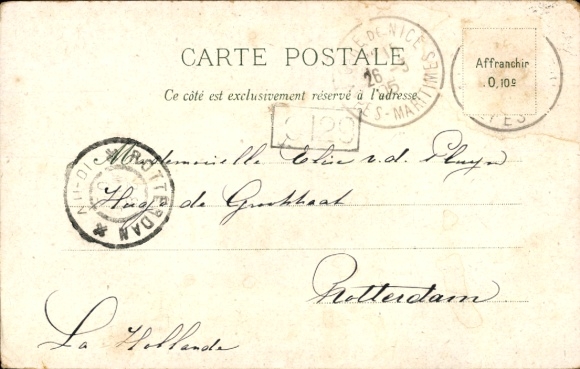 CARTE POSTALE
Ce côté est exclusivement réservé à l'adresse.
Affranchir
0,10c
DE NICE
26
ES-MARITIMES
ROTTERDAM
Mademoiselle Elise v.d. Pluym
Hugo de Grootstraat
Rotterdam
La Hollande